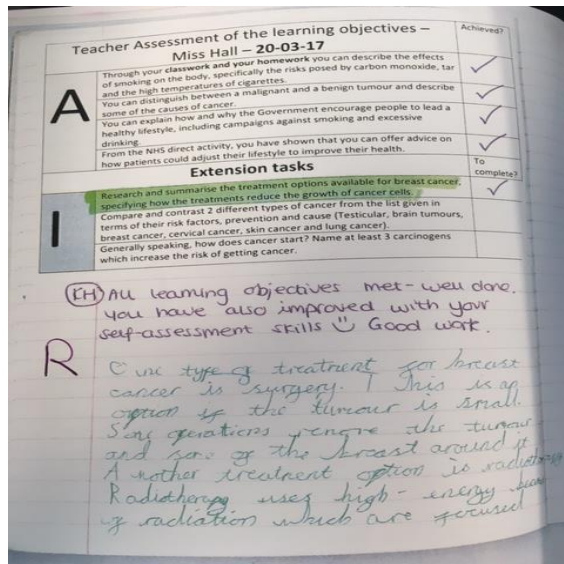 Teacher Assessment of the learning objectives –
Miss Hall – 20-03-17
Achieved?
A
Through your classwork and your homework you can describe the effects
of smoking on the body, specifically the risks posed by carbon monoxide, tar
and the high temperatures of cigarettes.
You can distinguish between a malignant and a benign tumour and describe
some of the causes of cancer.
You can explain how and why the Government encourage people to lead a
healthy lifestyle, including campaigns against smoking and excessive
drinking.
From the NHS direct activity, you have shown that you can offer advice on
how patients could adjust their lifestyle to improve their health.
Extension tasks
To
complete?
I
Research and summarise the treatment options available for breast cancer,
specifying how the treatments reduce the growth of cancer cells.
Compare and contrast 2 different types of cancer from the list given in
terms of their risk factors, prevention and cause (Testicular, brain tumours,
breast cancer, cervical cancer, skin cancer and lung cancer).
Generally speaking, how does cancer start? Name at least 3 carcinogens
which increase the risk of getting cancer.
KH All learning objectives met - well done.
you have also improved with your
self-assessment skills Good work.
R
One type of treatment for breast
cancer is surgery. This is an
option if the tumour is small.
Some operations remove the tumour
and some of the breast around it
Another treatment option is radiotherapy
Radiotherapy uses high-energy
of radiation which are focused